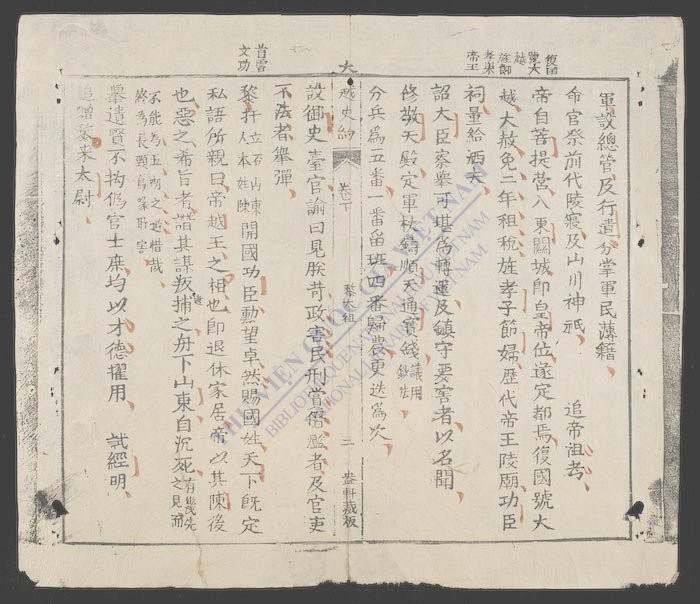 復國
號大
越
旌節
孝東
帝王
軍設總管及行遣分掌軍民薄籍
命官祭前代陵寢及山川神祇 追帝祖考
帝自菩提營入東關城即皇帝位遂定都焉復國號大
越大赦免二年租稅旌孝子節婦歷代帝王陵廟功臣
祠量給洒夫
詔大臣察舉可堪為轉運及鎮守要害者以名聞
修敬天殿定軍杖鑄順天通寶錢議用鈔法
分兵為五番一番留班四番歸農更迭為次
大越史約 卷下 黎太祖 二 盎軒藏板
首雲
文功
設御史臺官諭曰見朕苛政害民刑賞僭濫者及官吏
不法者舉彈
黎扞立石山東人本姓陳開國功臣勳望卓然賜國姓天下既定
私語所親曰帝越王之相也即退休家居帝以其陳後
也惡之希旨者譖其謀叛捕之舟下山東自沉死有幾先之見而
不能為五湖之遊惜哉
終為長頸烏喙所害
舉遺賢不拘仍官士庶均以才德擢用 試經明
追贈黎來太尉
THƯ VIỆN QUỐC GIA VIỆT NAM
BIBLIOTHÈQUE NATIONALE DU VIETNAM
NATIONAL LIBRARY OF VIETNAM